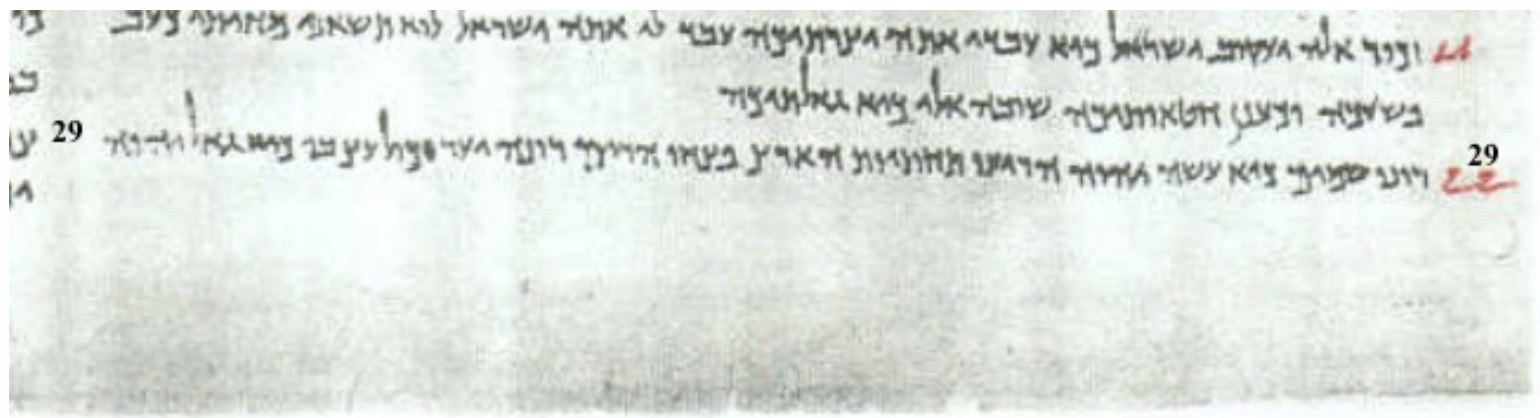 21 זכור אלה יעקוב ישראל כיא עבדי אתה יצרתיכה עבד לי אתה ישראל לוא תשאני מחיתי כעב
פשעיכה וכענן חטאותיכה שובה אלי כיא גאלתיכה
29 רונו שמים כיא עשה יהוה הריעו תחתיות הארץ פצחו הרים רונה יער וכול עץ בו כיא גאל יהוה 29